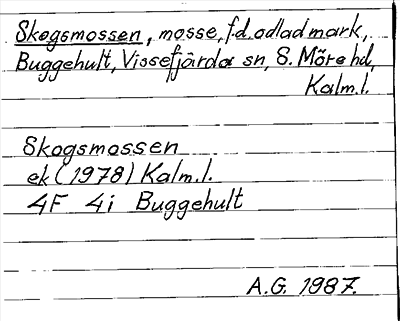 Skogsmossen, mosse, f.d. odlad mark,
Buggehult, Vissefjärda sn, S. Möre hd,
Kalm.l.
Skogsmossen
ek (1978) Kalm.l.
4F 4i Buggehult
A.G. 1987.